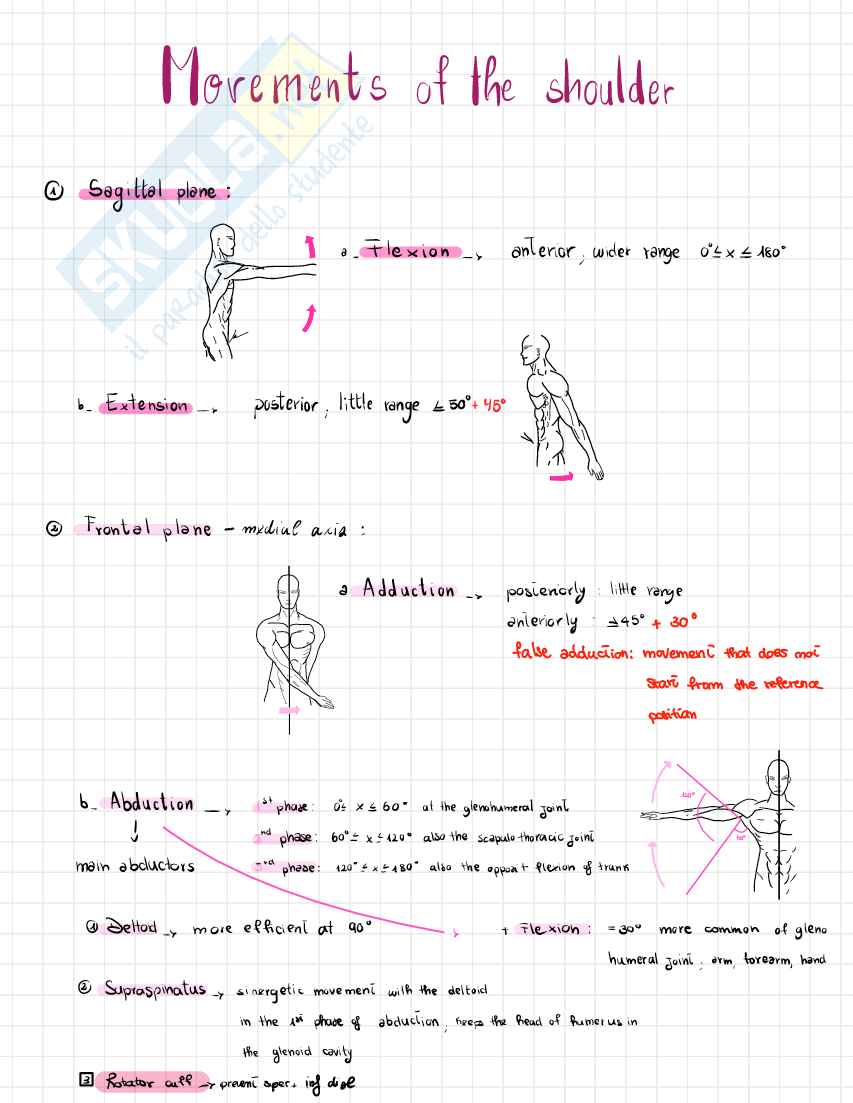 Movements of the shoulder
SKUOLA.net
il paradiso dello studente
① Sagittal plane :
a_ Flexion → anterior, wider range 0° ≤ x ≤ 180°
b_ Extension → posterior, little range ≤ 50° + 45°
② Frontal plane – medial axia :
a Adduction → posteriorly : little range
anteriorly : ≤ 45° + 30°
false adduction: movement that does not
start from the reference
position
b_ Abduction → 1st phase: 0° ≤ x ≤ 60° at the glenohumeral joint
2nd phase: 60° ≤ x ≤ 120° also the scapulo thoracic joint
main abductors 3rd phase: 120° ≤ x ≤ 180° also the flexion of trunk
120°
60°
① Deltoid → more efficient at 90° + Flexion : = 30° more common of gleno
humeral joint, arm, forearm, hand
② Supraspinatus → sinergetic movement with the deltoid
in the 1st phase of abduction, keeps the head of humerus in
the glenoid cavity
3 Rotator cuff → prevent